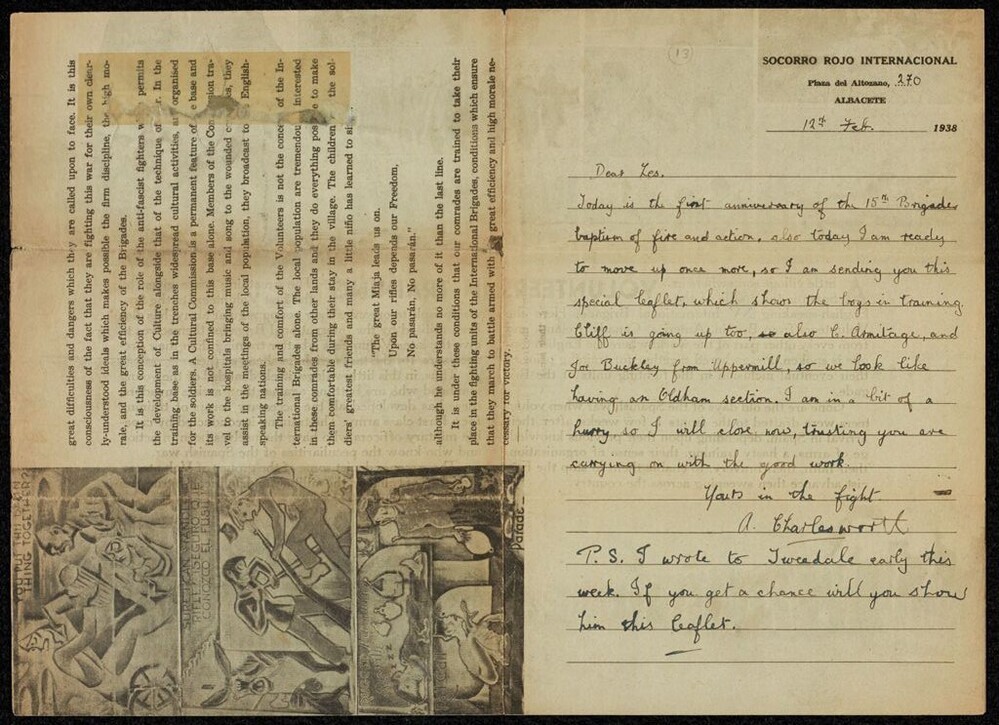 great difficulties and dangers which they are called upon to face. It is this
consciousness of the fact that they are fighting this war for their own clear-
ly-understood ideals which makes possible the firm discipline, the high mo-
rale, and the great efficiency of the Brigades.
It is this conception of the role of the anti-fascist fighters permits
the development of Culture alongside that of the technique of In the
training base as in the trenches widespread cultural activities, organised
for the soldiers. A Cultural Commission is a permanent feature of base and
its work is not confined to this base alone. Members of the tra-
vel to the hospitals bringing music and song to the wounded they
assist in the meetings of the local population, they broadcast to English-
speaking nations.
The training and comfort of the Volunteers is not the of the In-
ternational Brigades alone. The local population are interested
in these comrades from other lands and they do everything to make
them comfortable during their stay in the village. The children the sol-
diers' greatest friends and many a little niño has learned to
"The great Miaja leads us on.
Upon our rifles depends our Freedom,
No pasarán, No pasarán."
although he understands no more of it than the last line.
It is under these conditions that our comrades are trained to take their
place in the fighting units of the International Brigades, conditions which ensure
that they march to battle armed with great efficiency and high morale ne-
cessary for victory.
THING TOGETHER?
Parade
(13)
SOCORRO ROJO INTERNACIONAL
Plaza del Altozano, 270
ALBACETE
12th Feb. 1938
Dear Les.
Today is the first anniversary of the 15th Brigades
baptism of fire and action, also today I am ready
to move up once more, so I am sending you this
special leaflet, which shows the boys in training.
Cliff is going up too, also C. Armitage, and
Joe Buckley from Uppermill, so we look like
having an Oldham section. I am in a bit of a
hurry, so I will close now, trusting you are
carrying on with the good work.
Yours in the fight
A. Charlesworth
P.S. I wrote to Tweedale early this
week. If you get a chance will you show
him this leaflet.